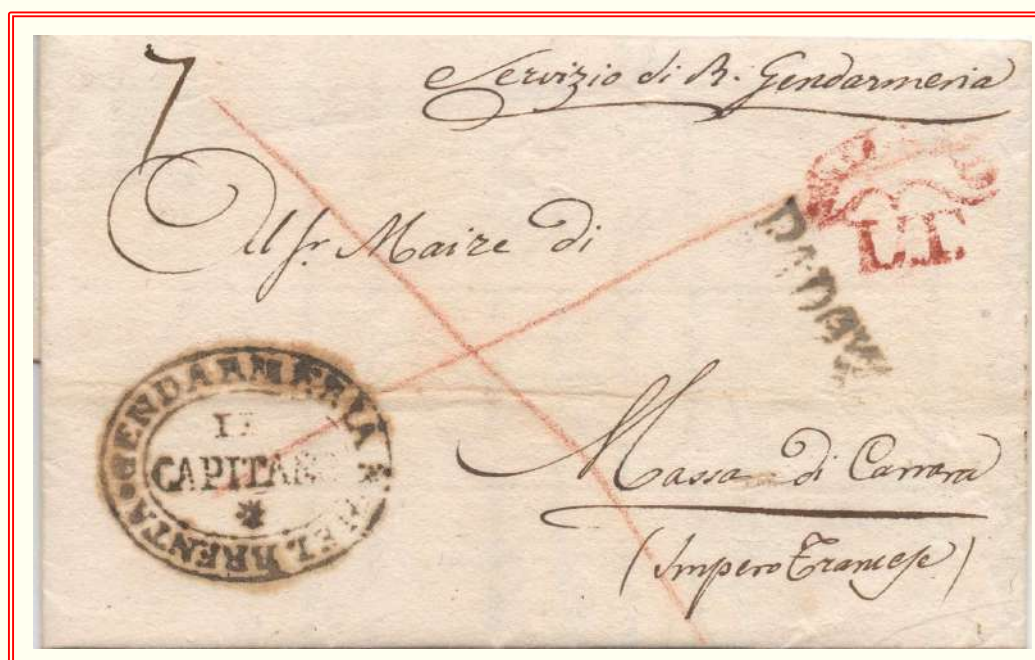 7
Servizio di R. Gendarmeria
L.T.
PADOVA
Al Sr. Maire di
GENDARMERIA * DEL BRENTA *
IL
CAPITANO
*
Massa di Carrara
(Impero Francese)